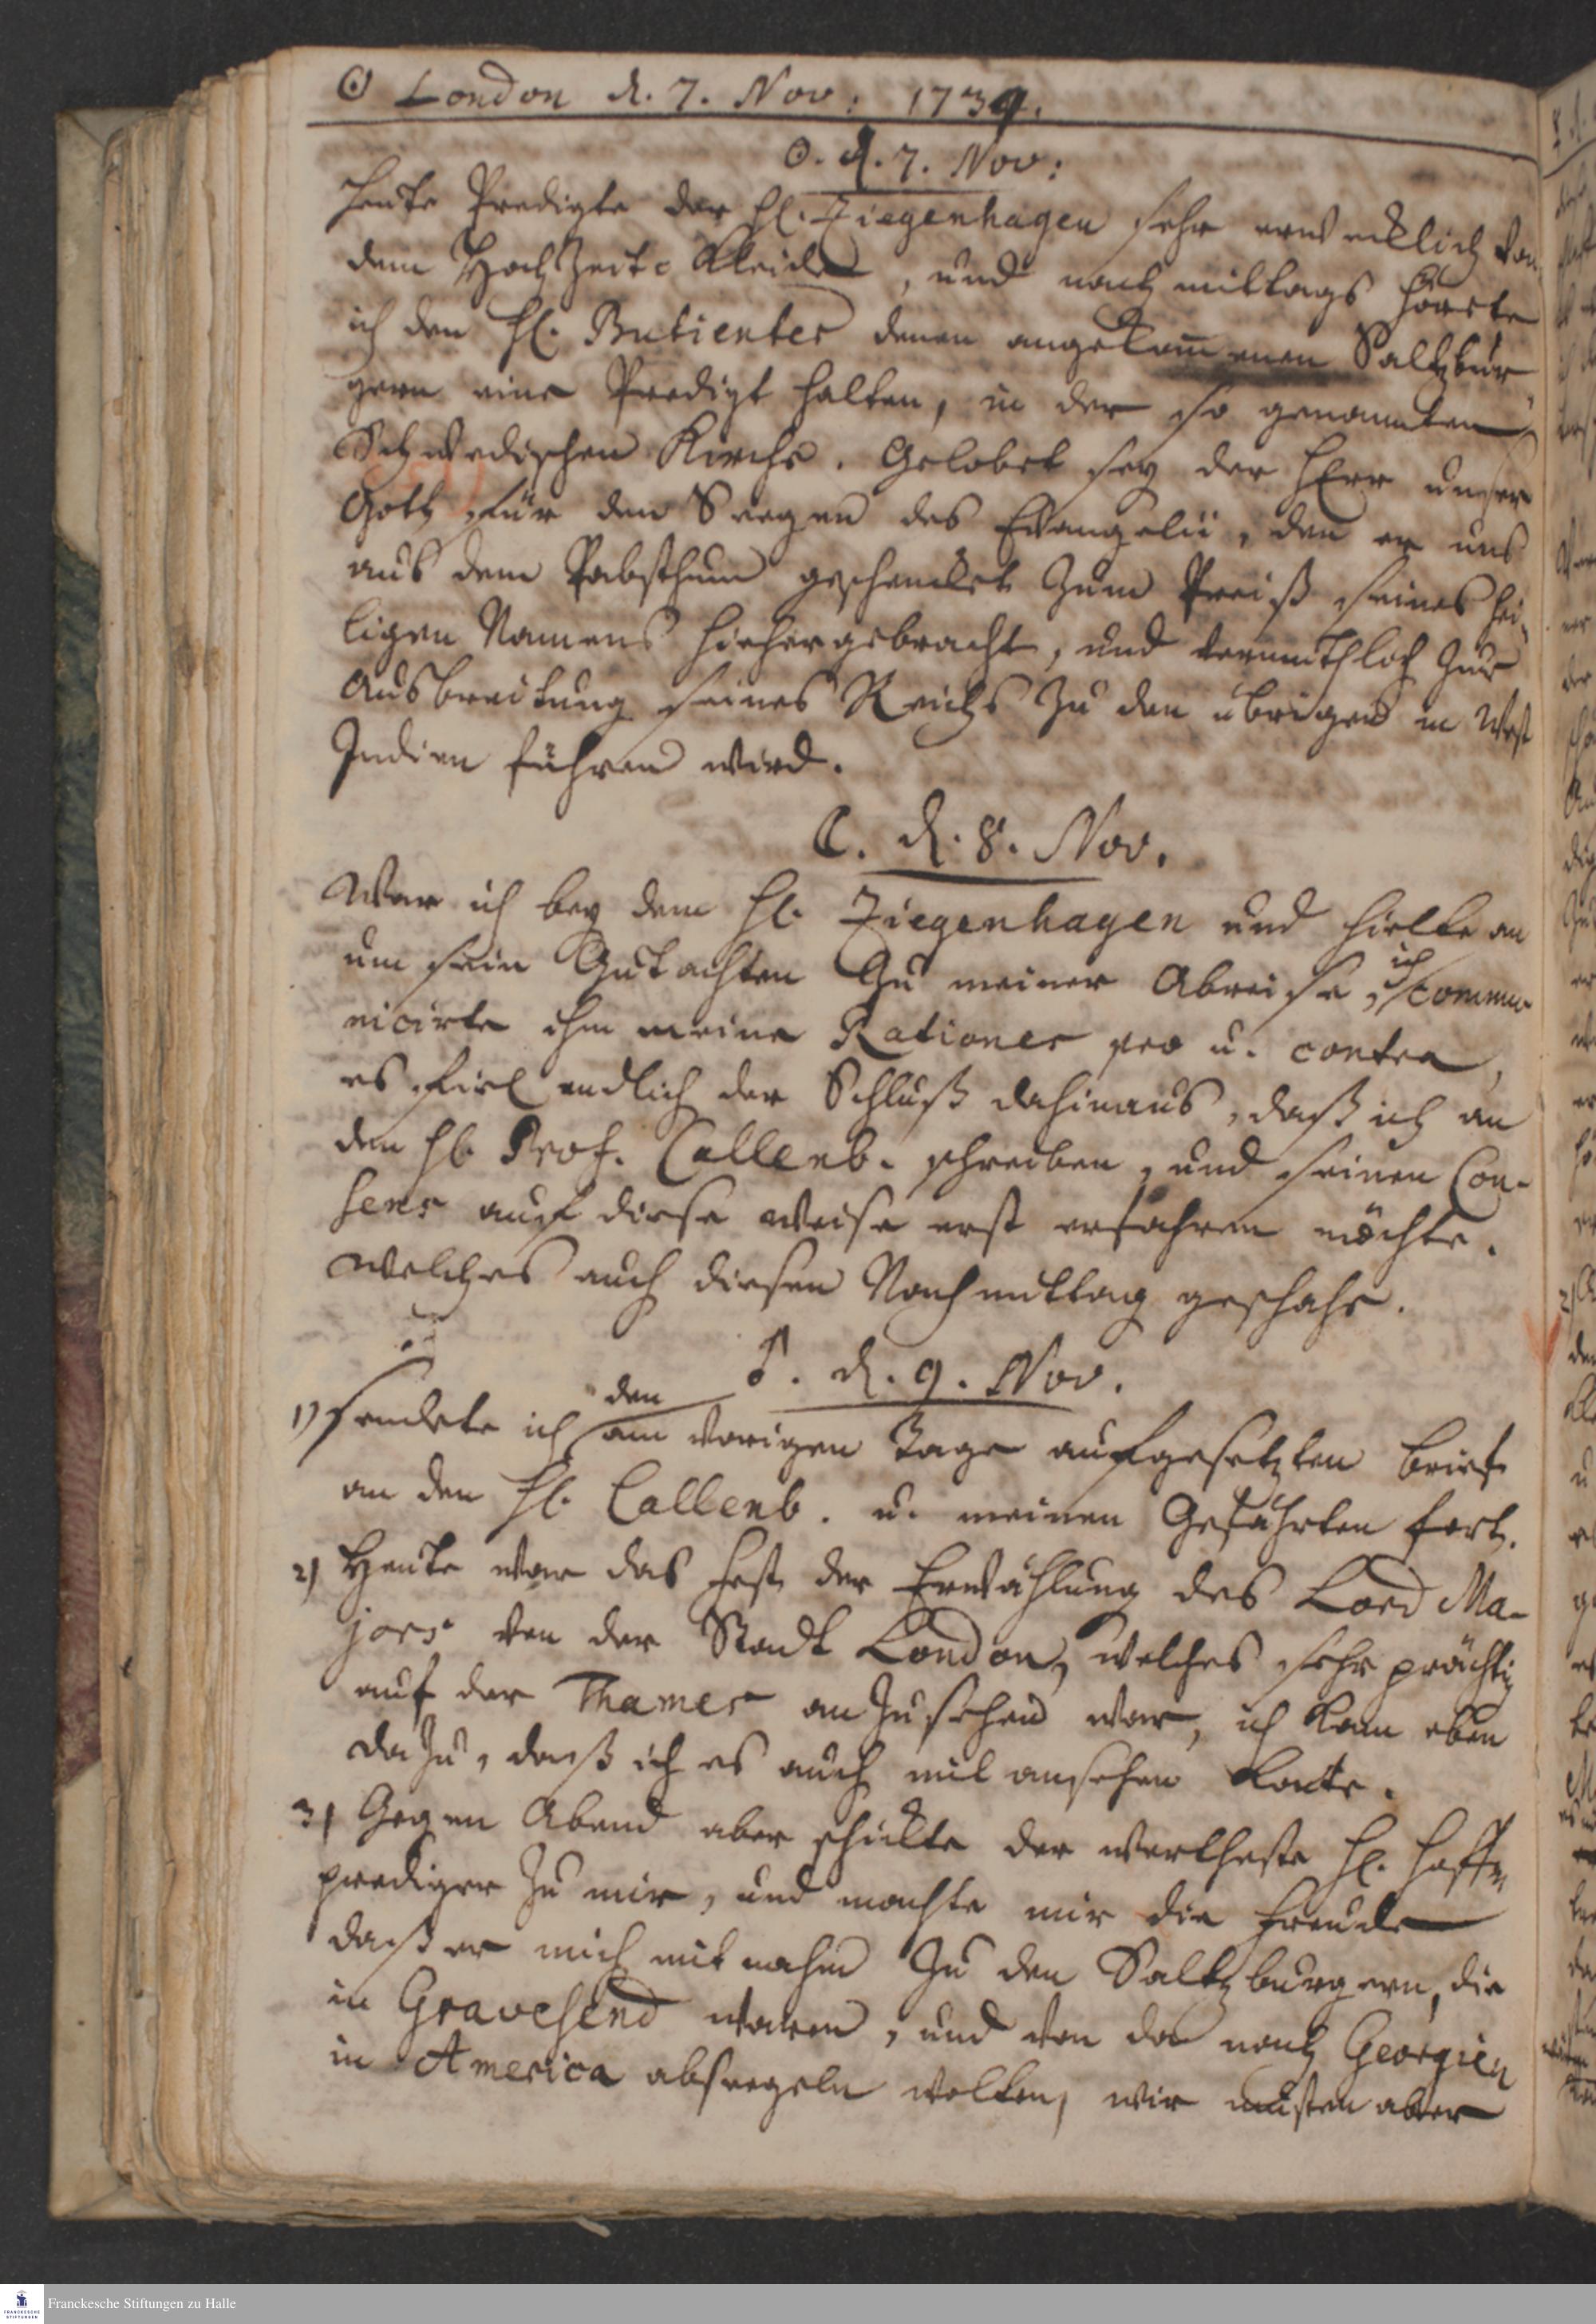 ☉ London d. 7. Nov: 1734.
☉. d. 7. Nov:
Heute Predigte der H. Ziegenhagen sehr erwecklich von
dem HochZeits Kleide, und nachmittags hörete
ich den H. Butienter denen angekom̃enen Saltzbur„
gern eine Predigt halten, in der so genannten
Schwedischen Kirche. Gelobet sey der HErr unser
Gott für den Seegen des Evangelii, den er uns
aus dem Pabsthum geschencket zum Preiß seines hei„
ligen Namens hieher gebracht, und vermuthlich zur
Ausbreitung seines Reichs zu den übrigen in West
Indien führen wird.
☾. d. 8. Nov.
War ich bey dem H. Ziegenhagen und hielte an
um sein Gutachten zu meiner Abreise, ich commu-
nicirte ihm meine Rationes pro u. contra,
es fiel endlich der Schluß dahinaus, daß ich an
den H. Prof. Callenb. schreiben, und seinen Con-
sens auf diese Weise erst erfahren möchte.
welches auch diesen Nachmittag geschahe.
♂. d. 9. Nov.
1) sendete ich den am vorigen Tage aufgesetzten brief
an den H. Callenb. u. meinen Gefährten fort.
2) Heute war das Fest der Erwählung des Lord Ma-
jors von der Stadt London, welches sehr prächtig
auf der Thames anzusehen war, ich kam eben
dazu, daß ich es auch mit ansehen konte.
3) Gegen Abend aber schickte der wertheste H. Hoff„
prediger zu mir, und machte mir die Freude
daß er mich mit nahm zu den Saltzburgern, die
in Gravesend waren, und von da nach Georgien
in America absegeln wolten, wir musten aber
Franckesche Stiftungen zu Halle